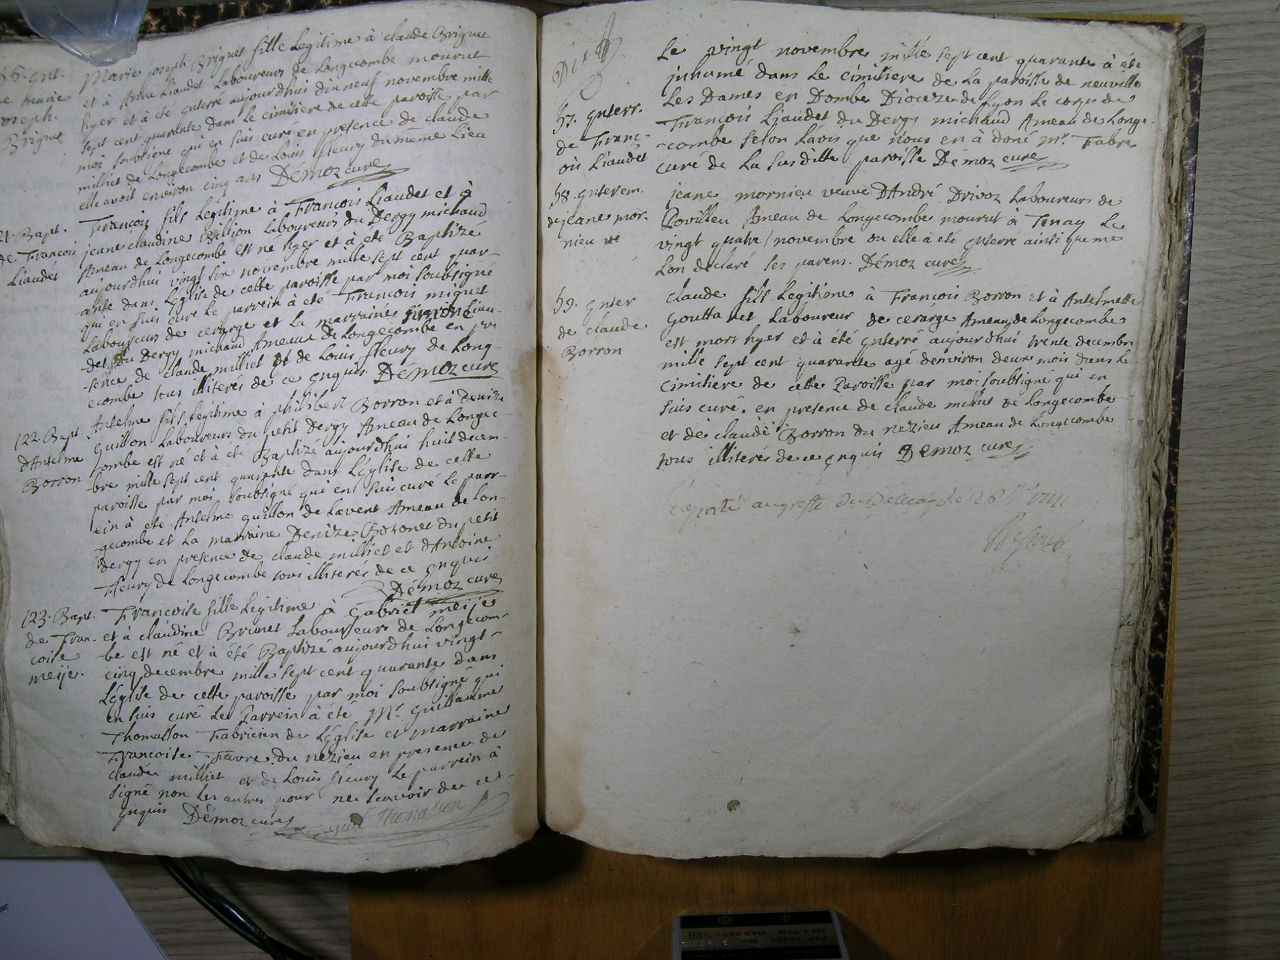 56. Ent.
de marie
joseph.
Brigue
Marie joseph Briguet fille Legitime à claude Brigue
et à Anne Liaudet Laboureurs de Longecombe mourut
hyer et à été enterré aujourdhui dixneuf novembre mille
sept cent quarante dans le cimiliere de cette paroisse par
moi soubsigné qui en suis curé en presence de claude
milliet de Longecombe et de Louis fleury du même Lieu
elle avoit environ cinq ans Demoz curé
121. Bapt.
de Francois
Liaudet
Francois fils Legitime à Francois Liaudet et à
jeane claudine Billion Laboureurs du Dergy michaud
Ameau de Longecombe est né hyer et à été Baptizé
aujourdhui vingt six novembre mille sept cent quar-
ante dans L'eglise de cette paroisse par moi soubsigné
qui en suis curé Le parrein à été Francois miguet
Laboureur de cerarge et La marraine Liau-
det du Dergy michaud Ameau de Longecombe en pré
-sence de claude milliet et de Louis fleury de Long-
ecombe tous illiterés de ce enquis Demoz curé
122. Bapt.
d'Antelme
Borron
Antelme fils Legitime à philibert Borron et à Denize
Guillon Laboureurs du petit Dergy Ameau de Longe-
combe est né et à été Baptizé aujourdhui huit decem-
bre mille sept cent quarante dans L'eglise de cette
paroisse par moi soubsigné qui en suis curé Le parr-
ein à été Antelme guillon de Lavent Ameau de Lon-
gecombe et La marraine Denize Bozonet du petit
Dergy en presence de claude milliet et d'Antoine
Fleury de Longecombe tous illiterés de ce enquis
Démoz curé
123. Bapt.
de Fran-
coise
meije.
Francoise fille Legitime à Gabriel meije
et à claudine Brunet Laboureurs de Longecom-
be est né et à été Baptizé aujourdhui vingt-
cinq decembre mille sept cent quarante dans
L'église de cette paroisse par moi soubsigné qui
en suis curé Le Parrein à été Mr. Guillaume
Thomasson Fabricien de L'église et marraine
Francoise Favre du nezieu en presence de
claude milliet et de Louis fleury Le parrein à
signé non Les autres pour ne scavoir de ce
enquis Démoz curé Thomasson
57. Enterr.
de Franc-
ois Liaudet
Le vingt novembre mille sept cent quarante à été
inhumé dans Le cimiliere de La paroisse de neuville
Les Dames en Dombe Diocèze de Lyon Le corps de
François Liaudet du Dergy michaud Ameau de Longe-
-combe selon L'avis que nous en à doné Mr. Fabre
curé de La susditte paroisse Demoz curé
58. Enterem.
de jeane mor.
nieu
jeane mornieu veuve D'André Drivoz Laboureurs de
Rovillieu Ameau de Longecombe mourut à Tenay Le
vingt quatre novembre ou elle à été enterré ainsi que me
L'on declaré ses parens. Démoz curé
59. Enter
de claude
Borron
claude fils Legitime à François Borron et à Antelmette
Gouttanet Laboureur de cerarge Ameau de Longecombe
est mort hyer et à été enterré aujourdhui trente decembre
mille sept cent quarante agé d'environ deux mois dans Le
cimiliere de cette Paroisse par moi soubsigné qui en
suis curé. en presence de claude milliet de Longecombe
et de claude Borron du nezieu Ameau de Longecombe
tous illiterés de ce enquis Demoz curé
aporté au greffe de